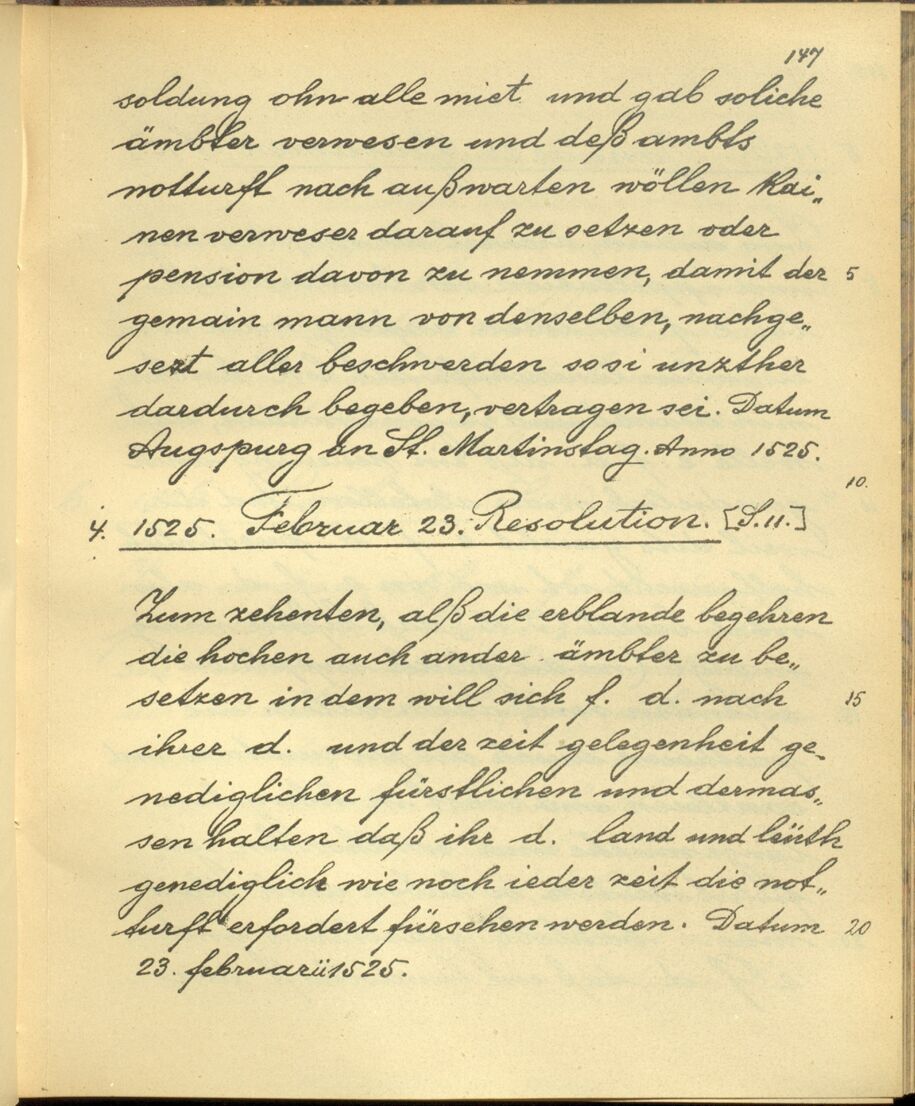 147
soldung ohn alle miet und gab soliche
ämbter verwesen und deß ambts
notturft nach außwarten wöllen kai„
nen verweser darauf zu setzen oder
pension davon zu nemmen, damit der 5
gemain mann von denselben, nachge„
sezt aller beschwerden so si unzther
dardurch begeben, vertragen sei. Datum
Augspurg an St. Martinstag. Anno 1525.
10.
4. 1525. Februar 23. Resolution. [S.11.]
Zum zehenten, alß die erblande begehren
die hochen auch ander ämbter zu be„
setzen in dem will sich f. d. nach 15
ihrer d. und der zeit gelegenheit ge„
nediglichen fürstlichen und dermas„
sen halten daß ihr d. land und leüth
genediglich wie noch ieder zeit die not„
turft erfordert fürsehen werden. Datum 20
23. februarii 1525.